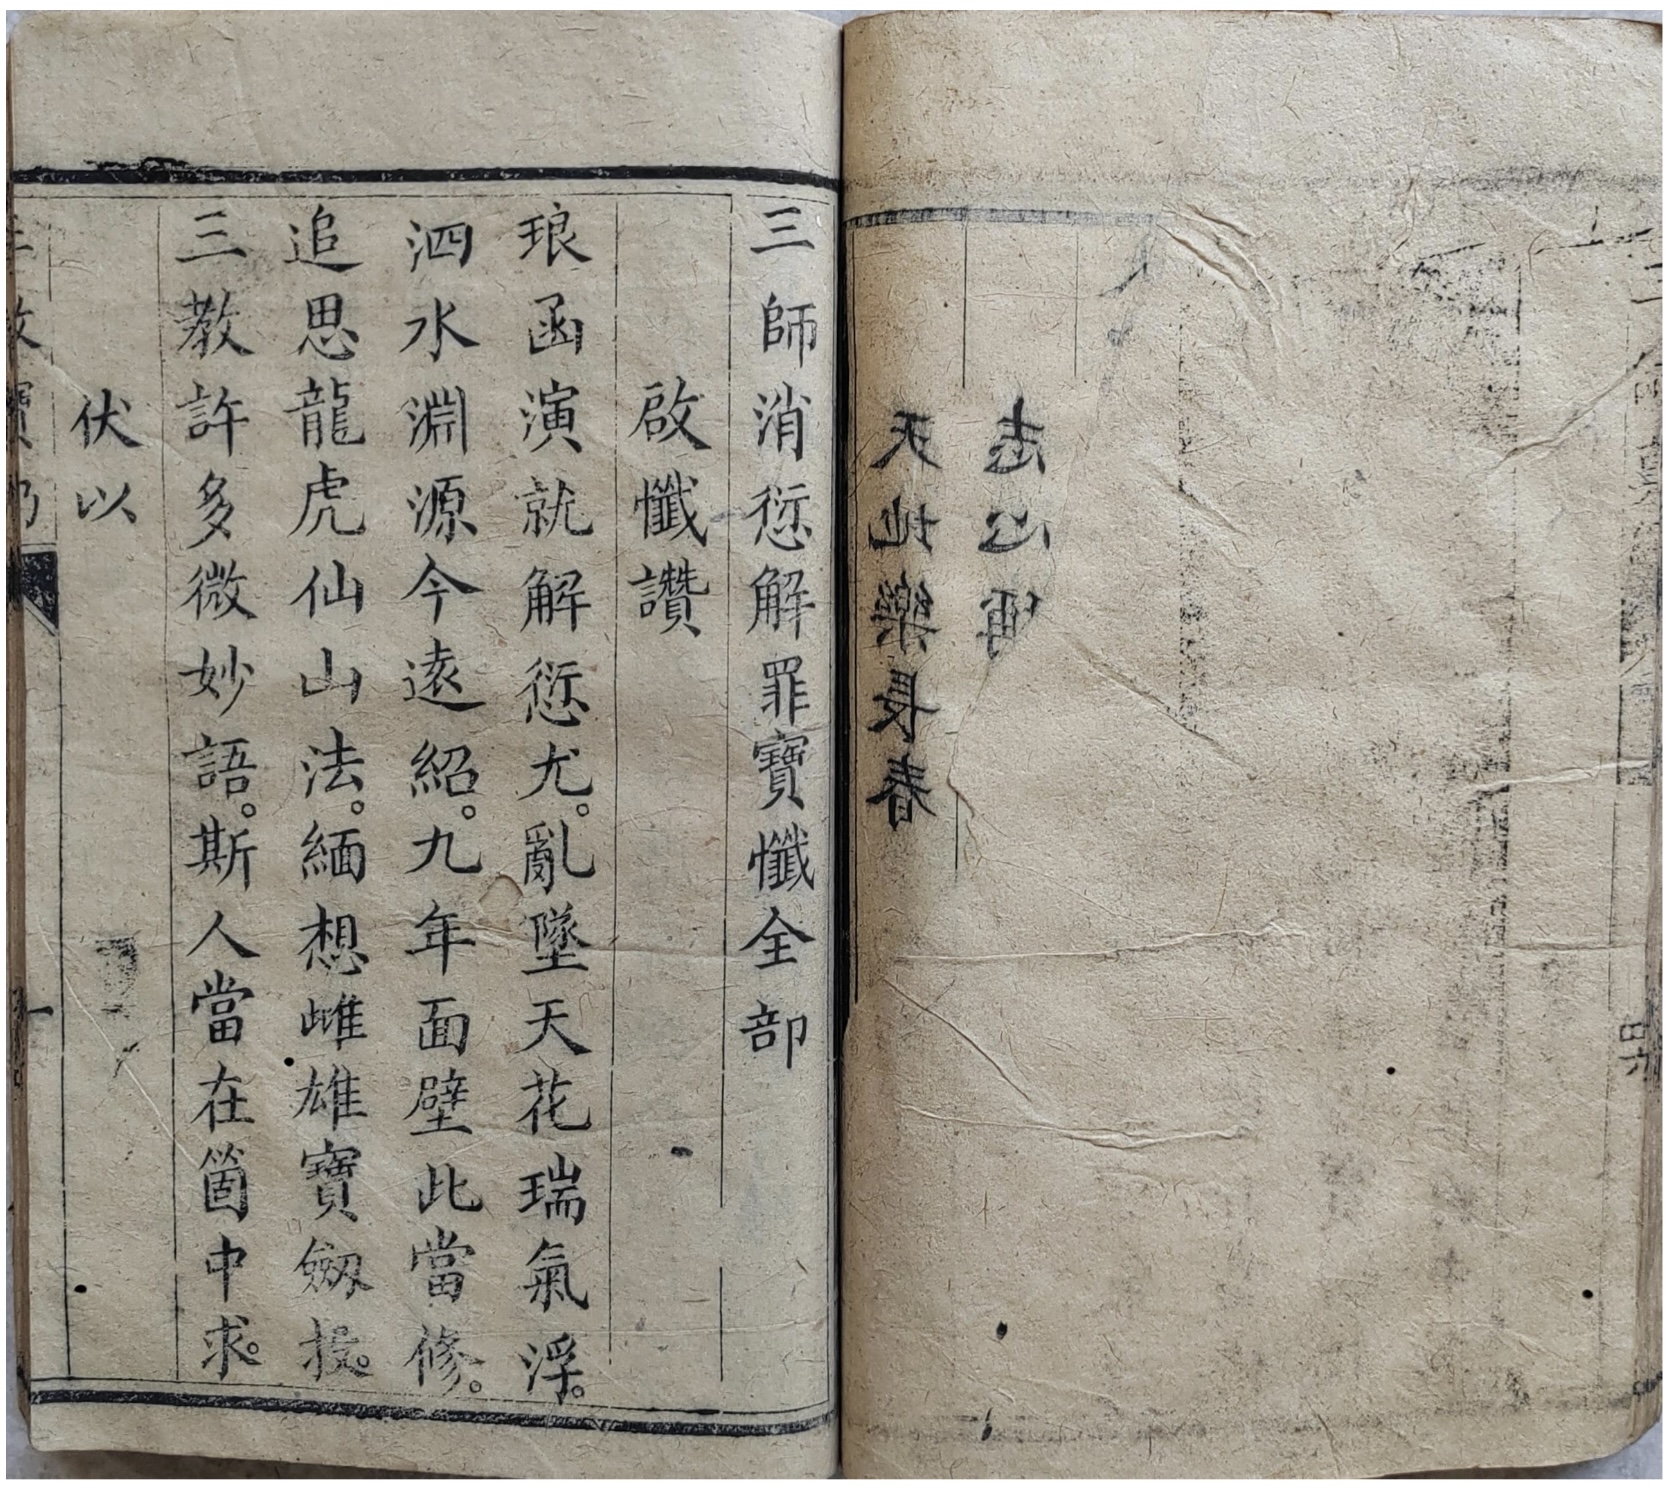 天地樂長春
三師消愆解罪寶懺全部
啟懺讚
琅函演就解愆尤。亂墜天花瑞氣浮。
泗水淵源今遠紹。九年面壁此當修。
追思龍虎仙山法。緬想雌雄寶劔投。
三教許多微妙語。斯人當在箇中求。
伏以
一